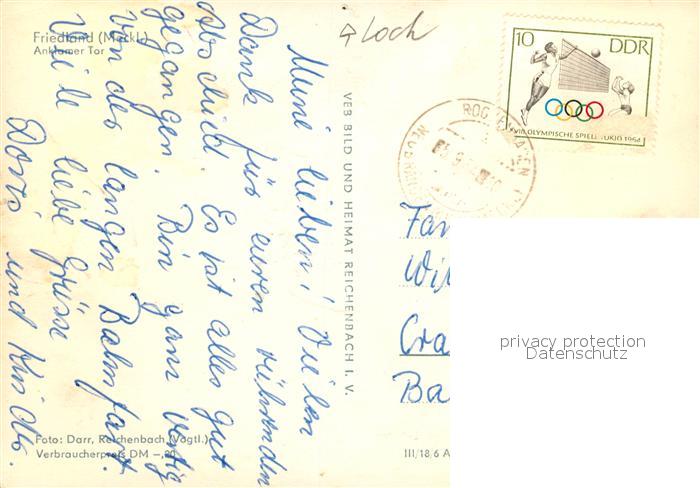 Friedland (Meckl.)
Anklamer Tor
Loch
10 DDR
XVIII. OLYMPISCHE SPIELE TOKIO 1964
Meine lieben! Vielen
Dank für euren rührenden
Abschied. Es ist alles gut
gegangen. Bin ganz fertig
von der langen Bahnfart.
Viele liebe Grüsse
Doris und Kinder.
VEB BILD UND HEIMAT REICHENBACH I. V.
Fam
Wil
Cra
Ba
privacy protection
Datenschutz
Foto: Darr, Reichenbach (Vogtl.)
Verbraucherpreis DM -,20
III/18/6 A